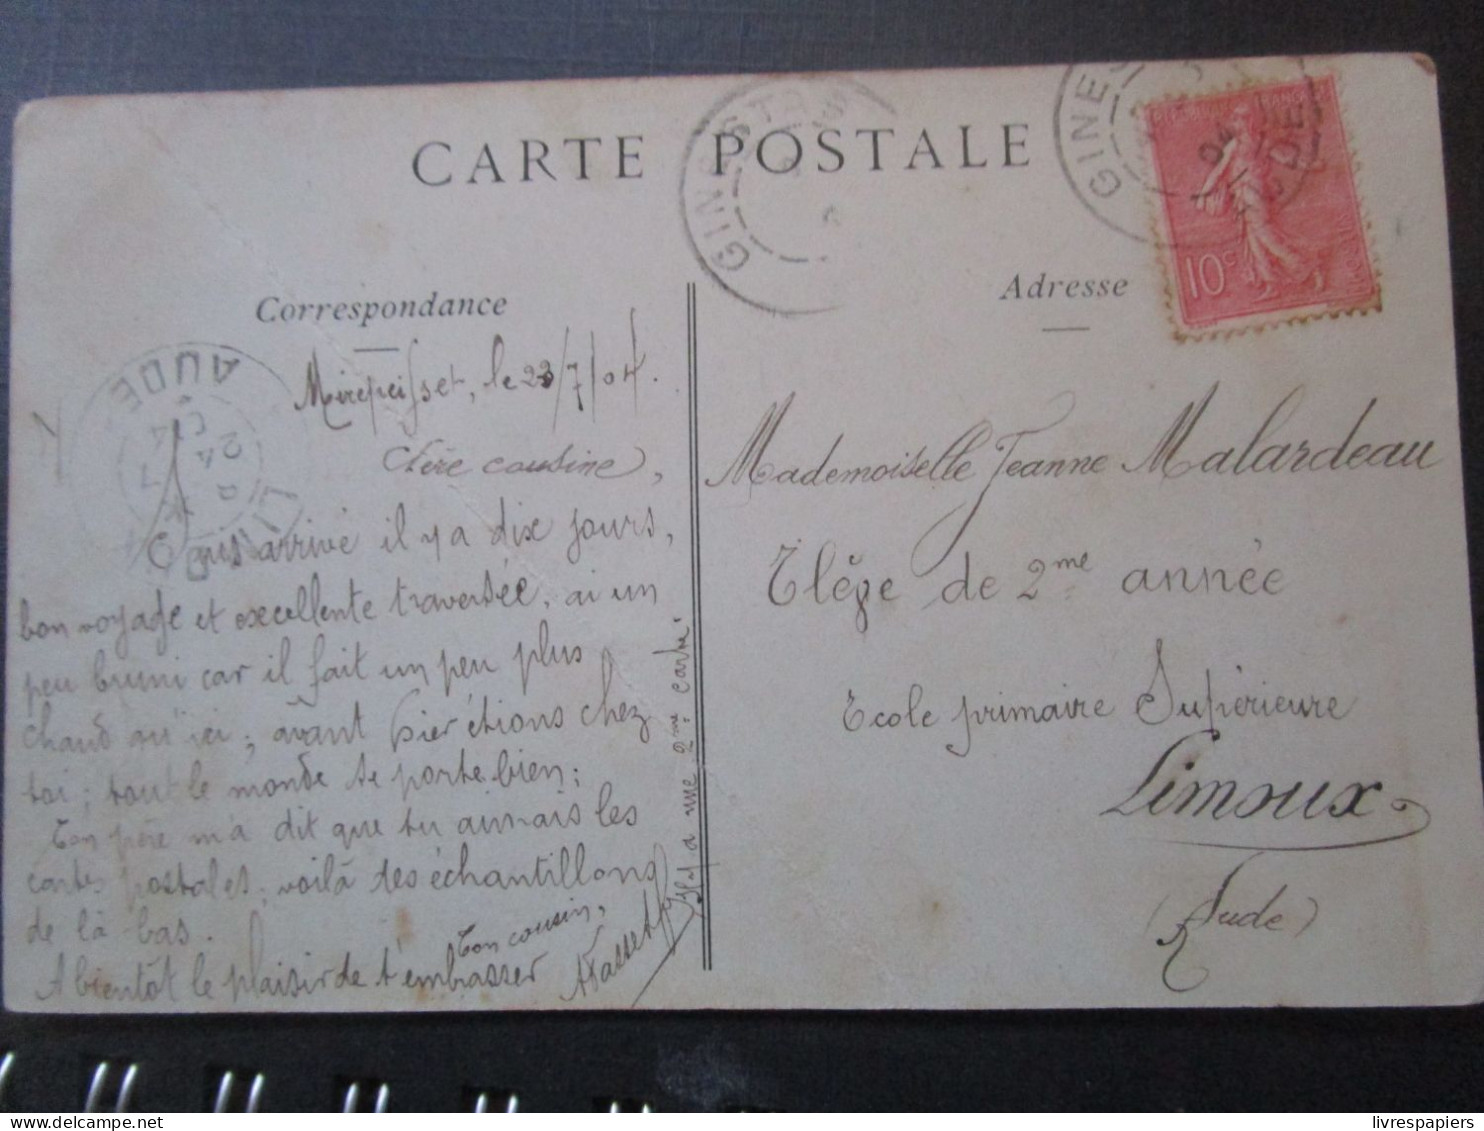 CARTE POSTALE
Correspondance
Mirepeisset, le 23/7/04.
Chère cousine,
suis arrivé il y a dix jours,
bon voyage et excellente traversée, ai un
peu bruni car il fait un peu plus
chaud qu'ici; avant hier étions chez
toi; tout le monde se porte bien;
Ton père m'a dit que tu aimais les
cartes postales; voilà des échantillons
de là bas.
A bientôt le plaisir de t'embrasser
Ton cousin,
Il y a une 2me carte.
Adresse
Mademoiselle Jeanne Malardeau
Elève de 2me année
Ecole primaire Supérieure
Limoux
(Aude)
10c
GINESTAS
GINES
AUDE
24
livrespapiers